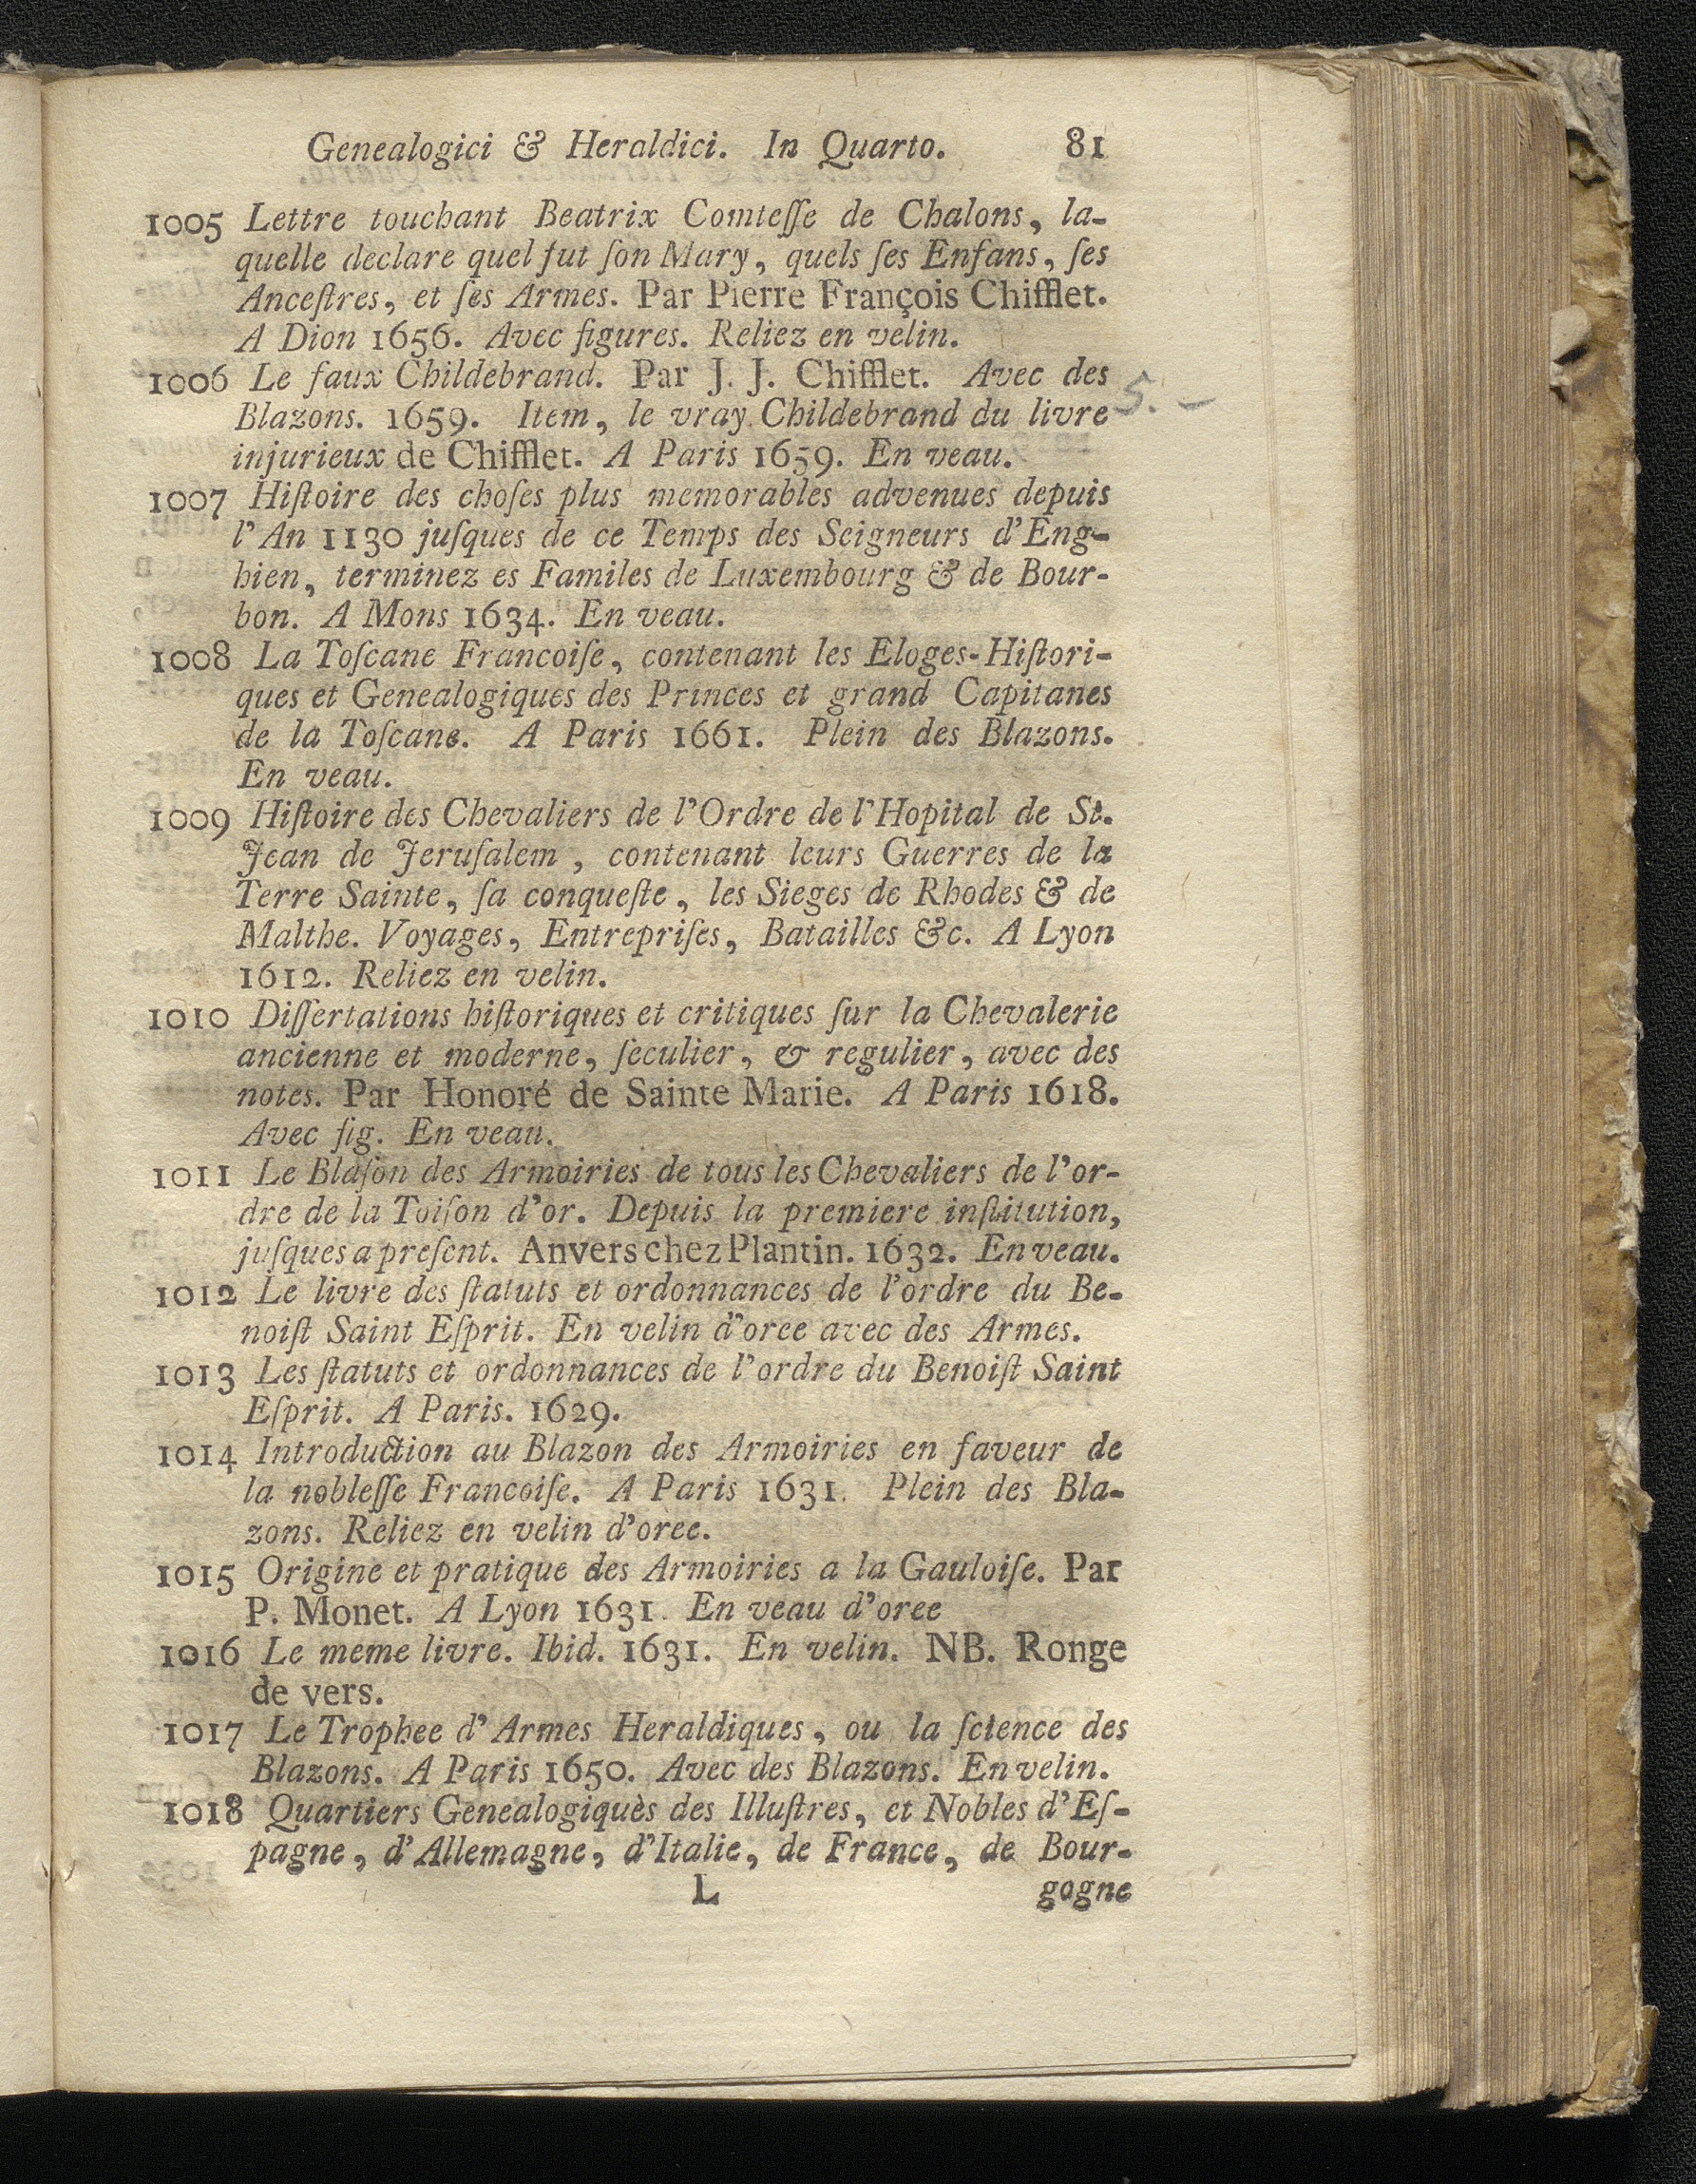 Genealogici & Heraldici. In Quarto. 81
1005 Lettre touchant Beatrix Comteſſe de Chalons, la-
quelle declare quel fut ſon Mary, quels ſes Enfans, ſes
Anceſtres, et ſes Armes. Par Pierre François Chifflet.
A Dion 1656. Avec figures. Reliez en velin.
1006 Le faux Childebrand. Par J. J. Chifflet. Avec des
Blazons. 1659. Item, le vray Childebrand du livre 5. –
injurieux de Chifflet. A Paris 1659. En veau.
1007 Hiſtoire des choſes plus memorables advenues depuis
l'An 1130 juſques de ce Temps des Seigneurs d'Eng-
hien, terminez es Familes de Luxembourg & de Bour-
bon. A Mons 1634. En veau.
1008 La Toſcane Francoiſe, contenant les Eloges-Hiſtori-
ques et Genealogiques des Princes et grand Capitanes
de la Toſcane. A Paris 1661. Plein des Blazons.
En veau.
1009 Hiſtoire des Chevaliers de l'Ordre de l'Hopital de St.
Jean de Jeruſalem, contenant leurs Guerres de la
Terre Sainte, ſa conqueſte, les Sieges de Rhodes & de
Malthe. Voyages, Entrepriſes, Batailles &c. A Lyon
1612. Reliez en velin.
1010 Diſſertations hiſtoriques et critiques ſur la Chevalerie
ancienne et moderne, ſeculier, & regulier, avec des
notes. Par Honoré de Sainte Marie. A Paris 1618.
Avec fig. En veau.
1011 Le Blaſon des Armoiries de tous les Chevaliers de l'or-
dre de la Toiſon d'or. Depuis la premiere inſtitution,
juſques a preſent. Anvers chez Plantin. 1632. En veau.
1012 Le livre des ſtatuts et ordonnances de l'ordre du Be-
noiſt Saint Eſprit. En velin d'oree avec des Armes.
1013 Les ſtatuts et ordonnances de l'ordre du Benoiſt Saint
Eſprit. A Paris. 1629.
1014 Introduction au Blazon des Armoiries en faveur de
la nobleſſe Francoiſe. A Paris 1631. Plein des Bla-
zons. Reliez en velin d'oree.
1015 Origine et pratique des Armoiries a la Gauloiſe. Par
P. Monet. A Lyon 1631. En veau d'oree
1016 Le meme livre. Ibid. 1631. En velin. NB. Ronge
de vers.
1017 Le Trophee d'Armes Heraldiques, ou la ſcience des
Blazons. A Paris 1650. Avec des Blazons. En velin.
1018 Quartiers Genealogiquès des Illuſtres, et Nobles d'Eſ-
pagne, d'Allemagne, d'Italie, de France, de Bour-
L gogne